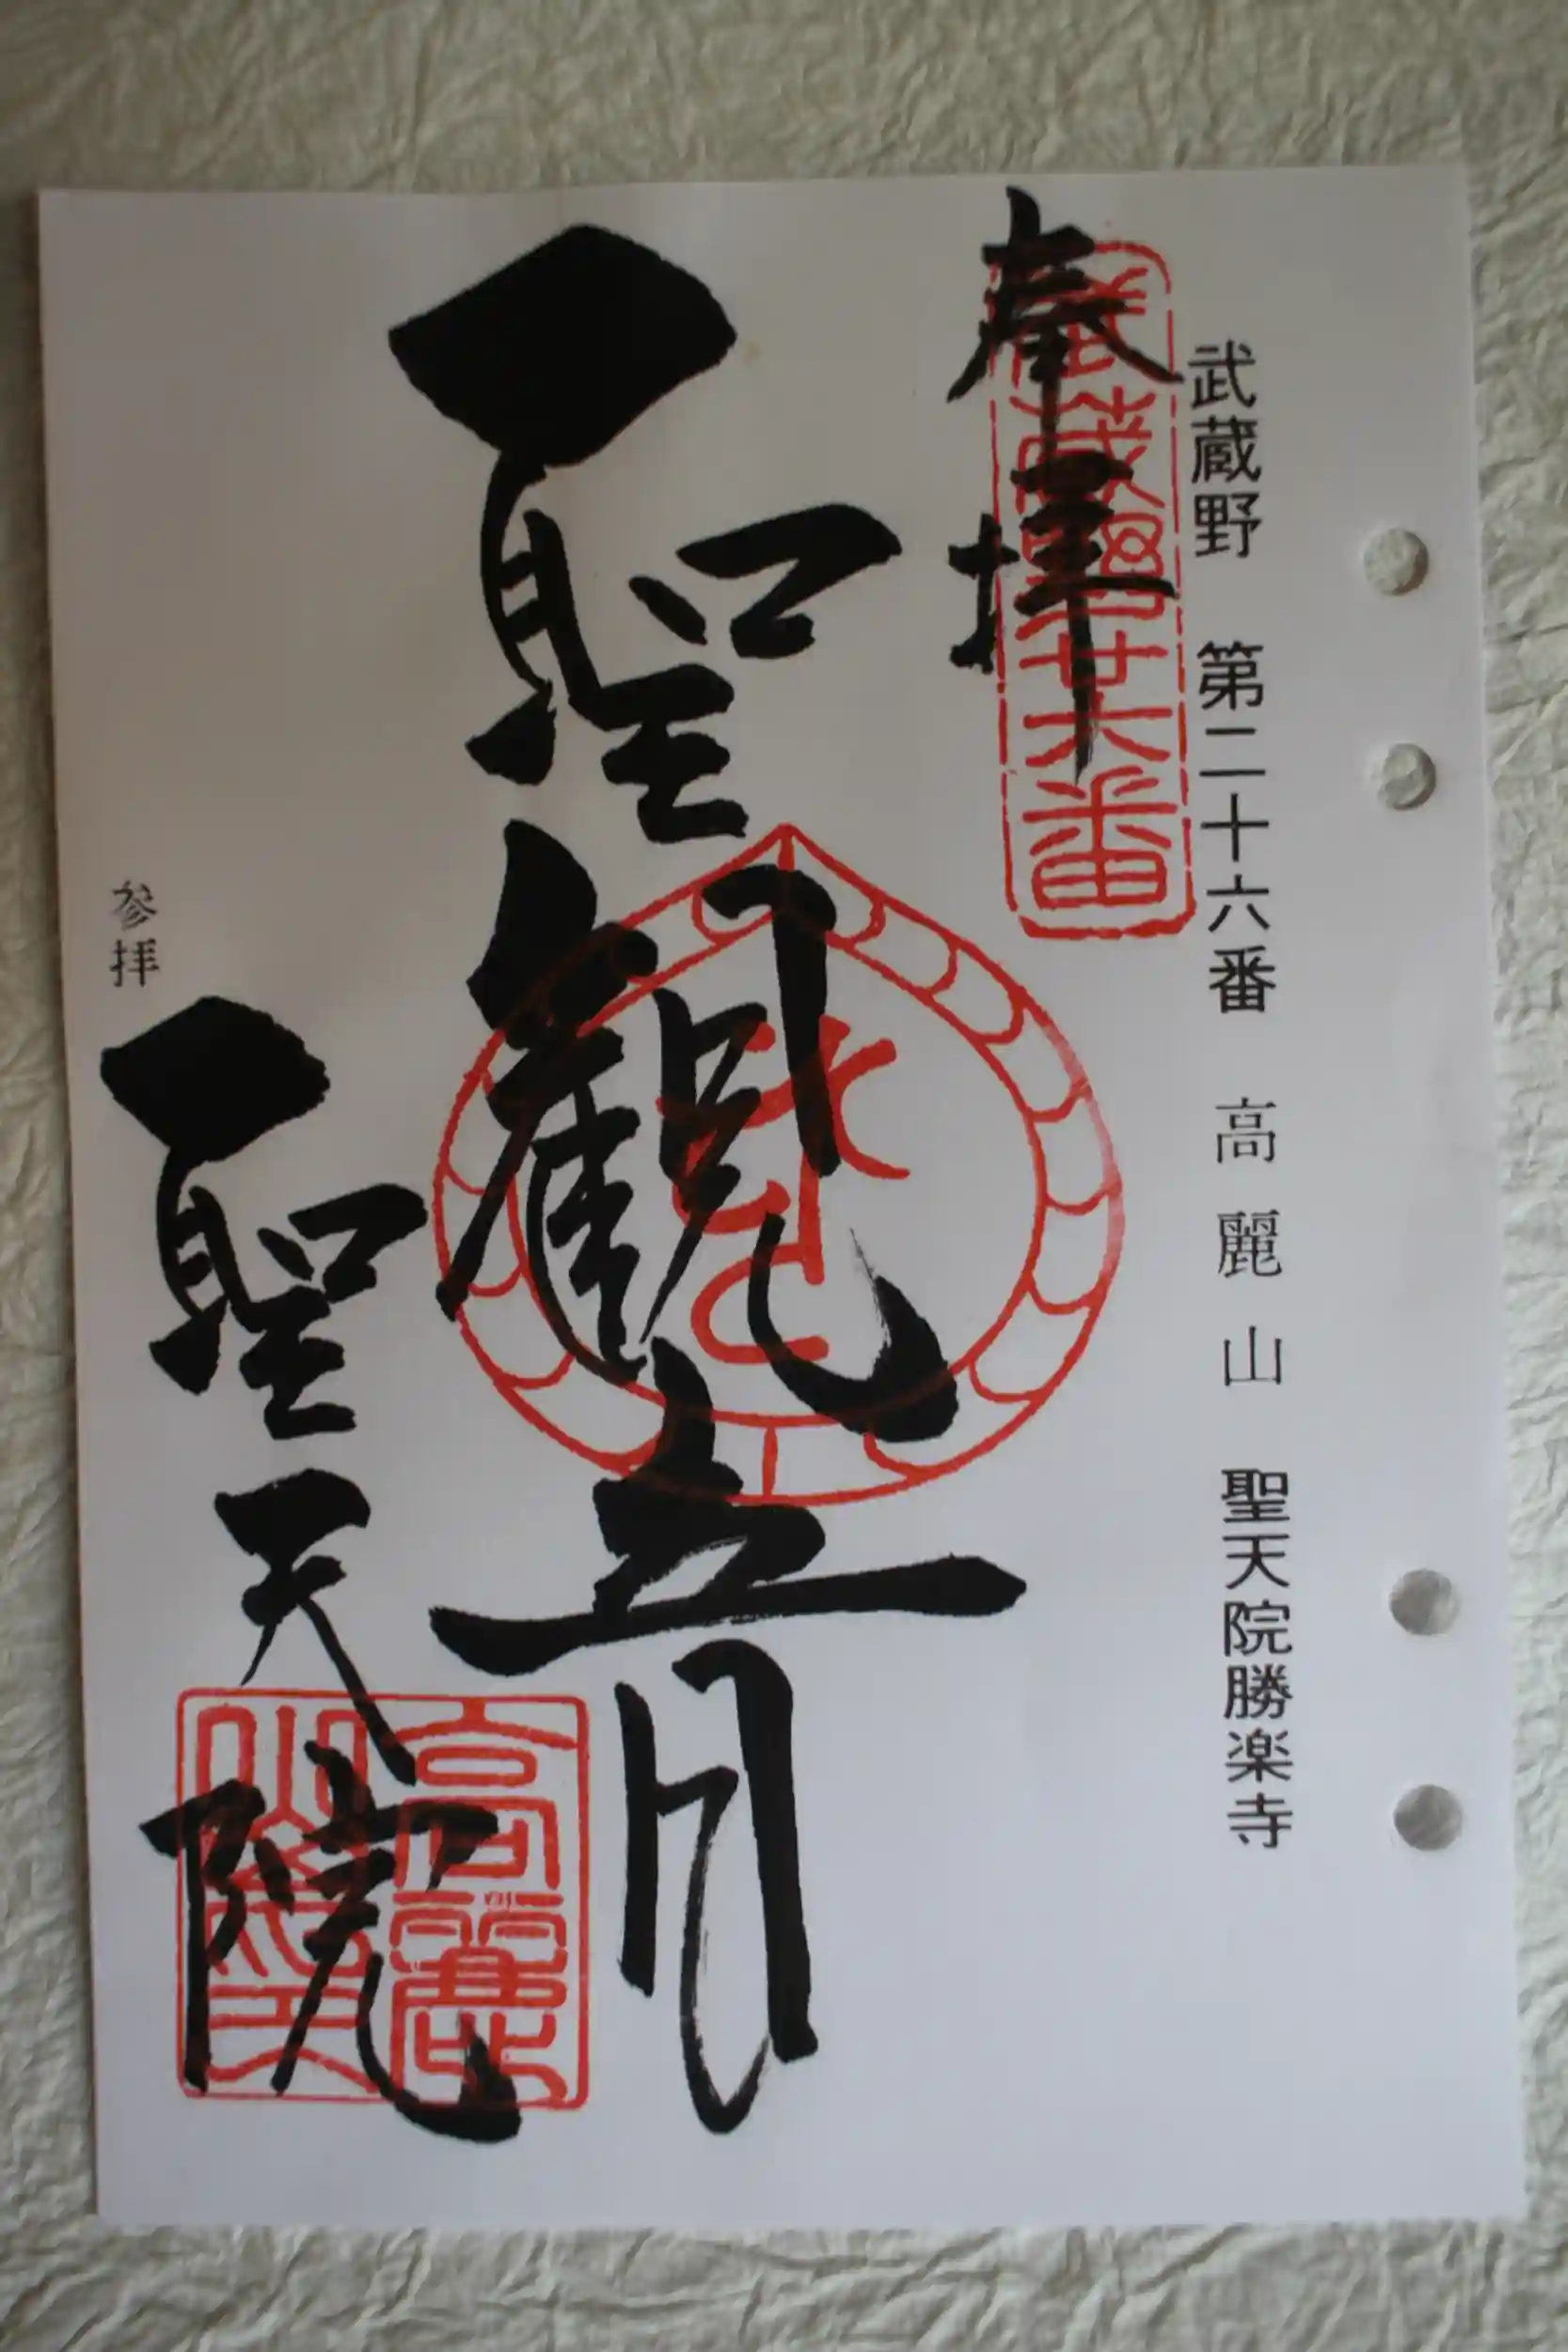 武蔵野 第二十六番 高麗山 聖天院勝楽寺
奉拝
武蔵野廿六番
聖観音
聖天院
高麗山印
参拝